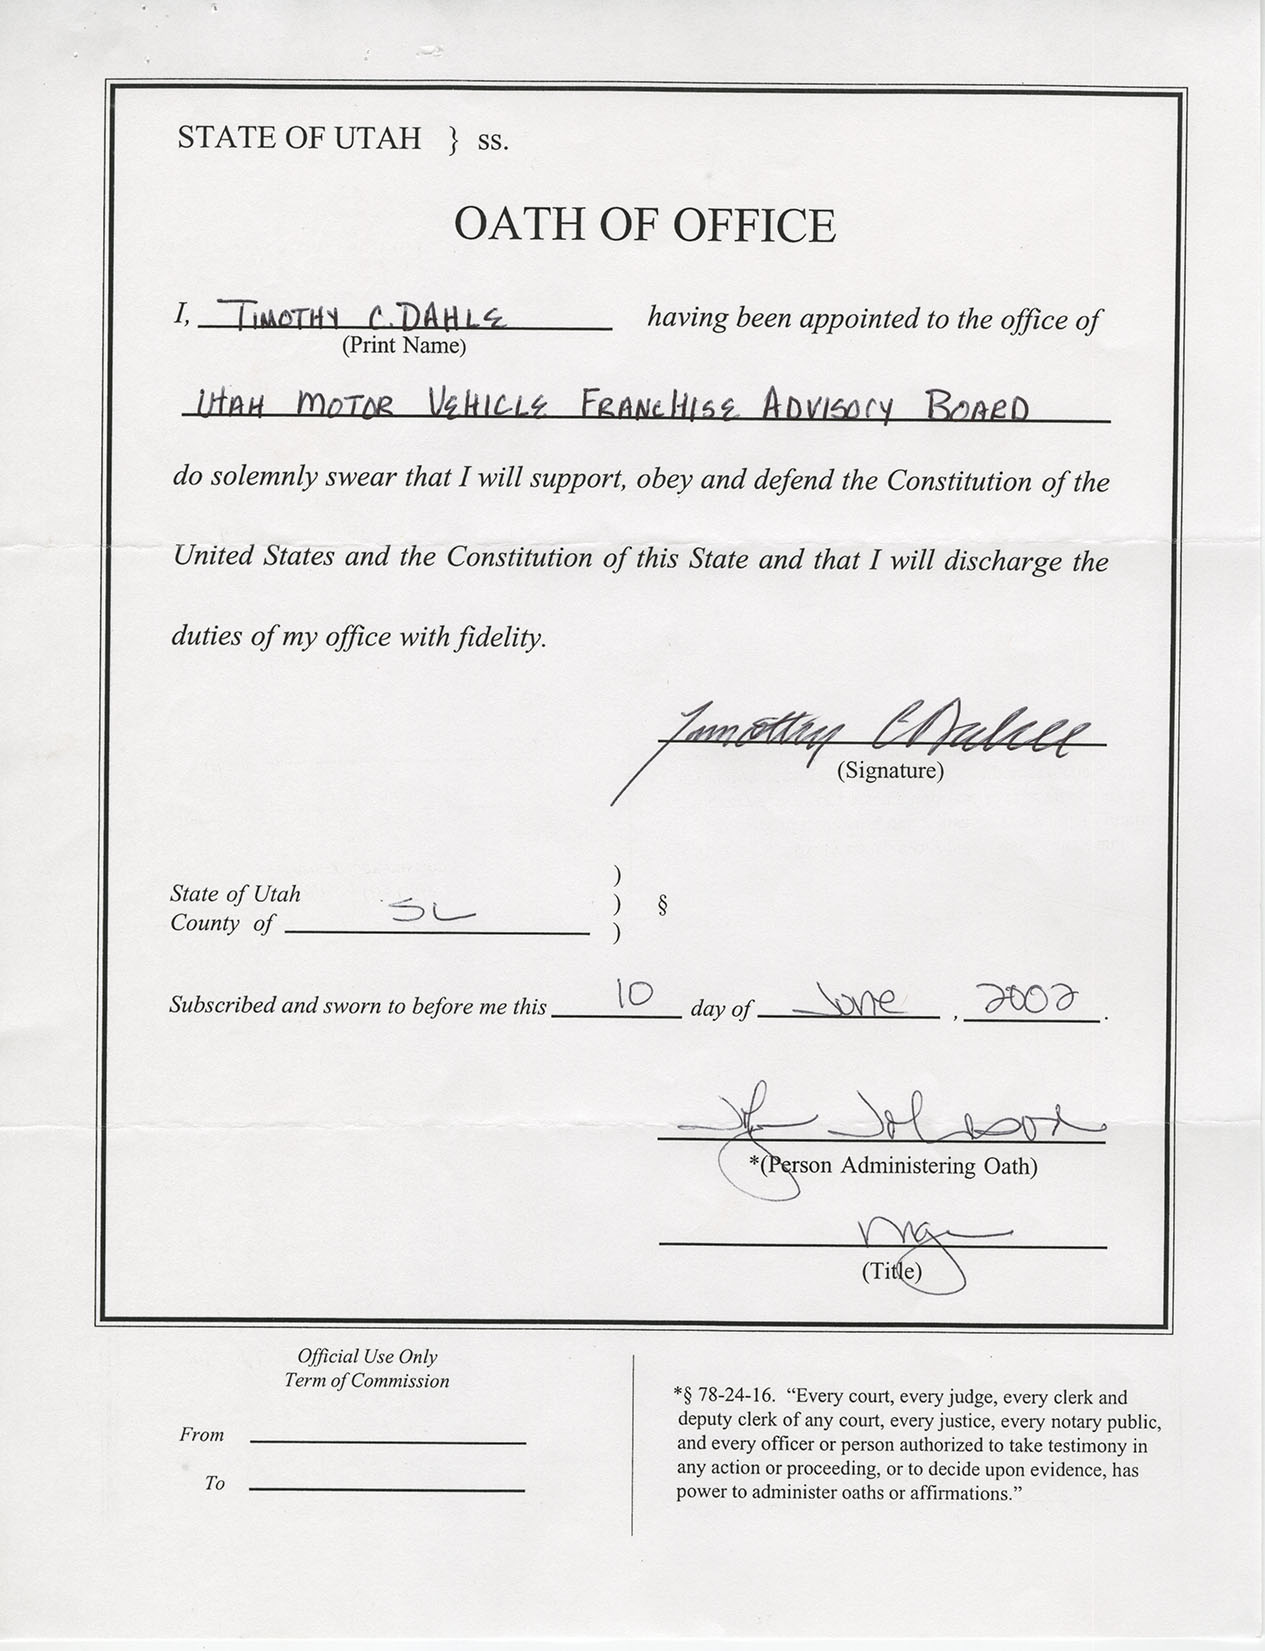 STATE OF UTAH } ss.
OATH OF OFFICE
I, TIMOTHY C. DAHLE having been appointed to the office of
(Print Name)
UTAH MOTOR VEHICLE FRANCHISE ADVISORY BOARD
do solemnly swear that I will support, obey and defend the Constitution of the
United States and the Constitution of this State and that I will discharge the
duties of my office with fidelity.
Timothy C Dahle
(Signature)
)
State of Utah
) §
County of SL
)
Subscribed and sworn to before me this 10 day of June, 2002.
Johnson
*(Person Administering Oath)
Mgr
(Title)
Official Use Only
Term of Commission
From
To
*§ 78-24-16. “Every court, every judge, every clerk and
deputy clerk of any court, every justice, every notary public,
and every officer or person authorized to take testimony in
any action or proceeding, or to decide upon evidence, has
power to administer oaths or affirmations.”